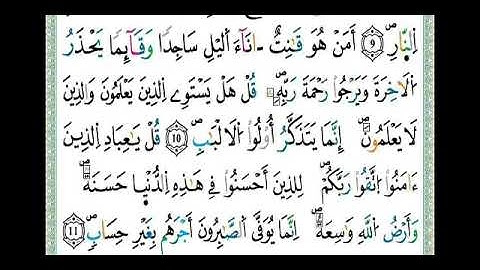 اِ۬لنّ۪ارِۖ ٩ أَمَنْ هُوَ قَٰنِتٌ ـانَآءَ اَ۬ليْلِ سَاجِداٗ وَقَآئِماٗ يَحْذَرُ
اُ۬لَاخِرَةَ وَيَرْجُواْ رَحْمَةَ رَبِّهِۦۖ قُلْ هَلْ يَسْتَوِے اِ۬لذِينَ يَعْلَمُونَ وَالذِينَ
لَا يَعْلَمُونَۖ إِنَّمَا يَتَذَكَّرُ أُوْلُواْ اُ۬لَالْبَٰبِۖ ١٠ قُلْ يَٰعِبَادِ اِ۬لذِينَ
ءَامَنُواْ اُ۪تَّقُواْ رَبَّكُمْۖ لِلذِينَ أَحْسَنُواْ فِے هَٰذِهِ اِ۬لدُّنْي۪ا حَسَنَةٞۖ
وَأَرْضُ اُ۬للَّهِ وَٰسِعَةٌۖ اِنَّمَا يُوَفَّي اَ۬لصَّٰبِرُونَ أَجْرَهُم بِغَيْرِ حِسَابٖۖ ١١